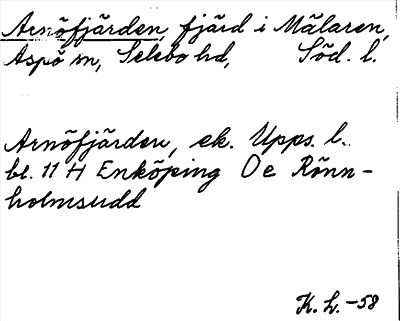 Arnöfjärden, fjärd i Mälaren,
Aspö sn, Selebo hd, Söd. l.
Arnöfjärden, ek. Upps. l.
bl. 11 H Enköping Oe Rönn-
holmsudd
K. L. -58